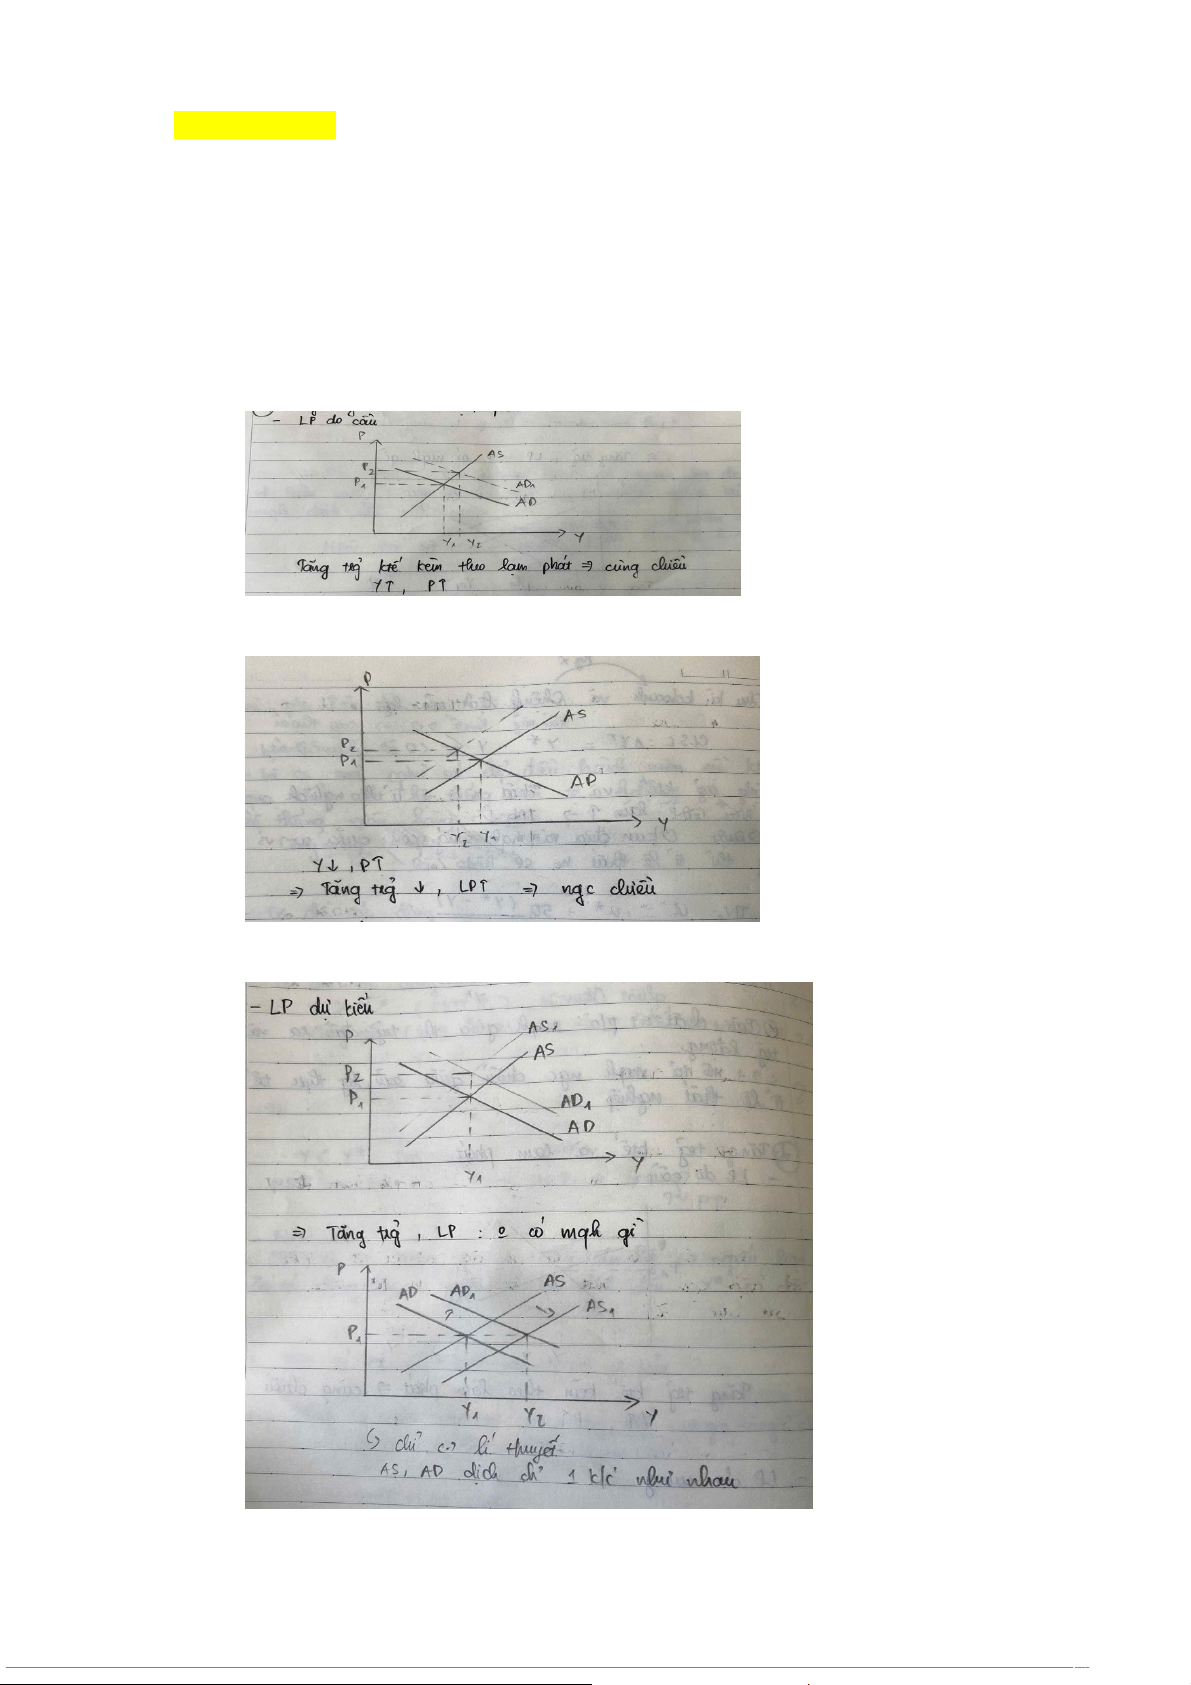 - LP do cầu
P
AS
P2
P1
AD1
AD
Y1 Y2
Y
Tăng trg̉ ktế kèm theo lạm phát => cùng chiều
Y↑, P↑
P
AS
P2
P1
AD
Y2 Y1
Y
Y↓, P↑
=> Tăng trg̉ ↓, LP↑ => ngc chiều
- LP dự kiến
P
AS
P2
P1
AD1
AD
Y1
Y
=> Tăng trg̉, LP : o có mqh gì
P
AD AD1 AS
AS1
P1
Y1 Y2
Y
lí thuyết
AS, AD dịch ch 1 k/c như nhau